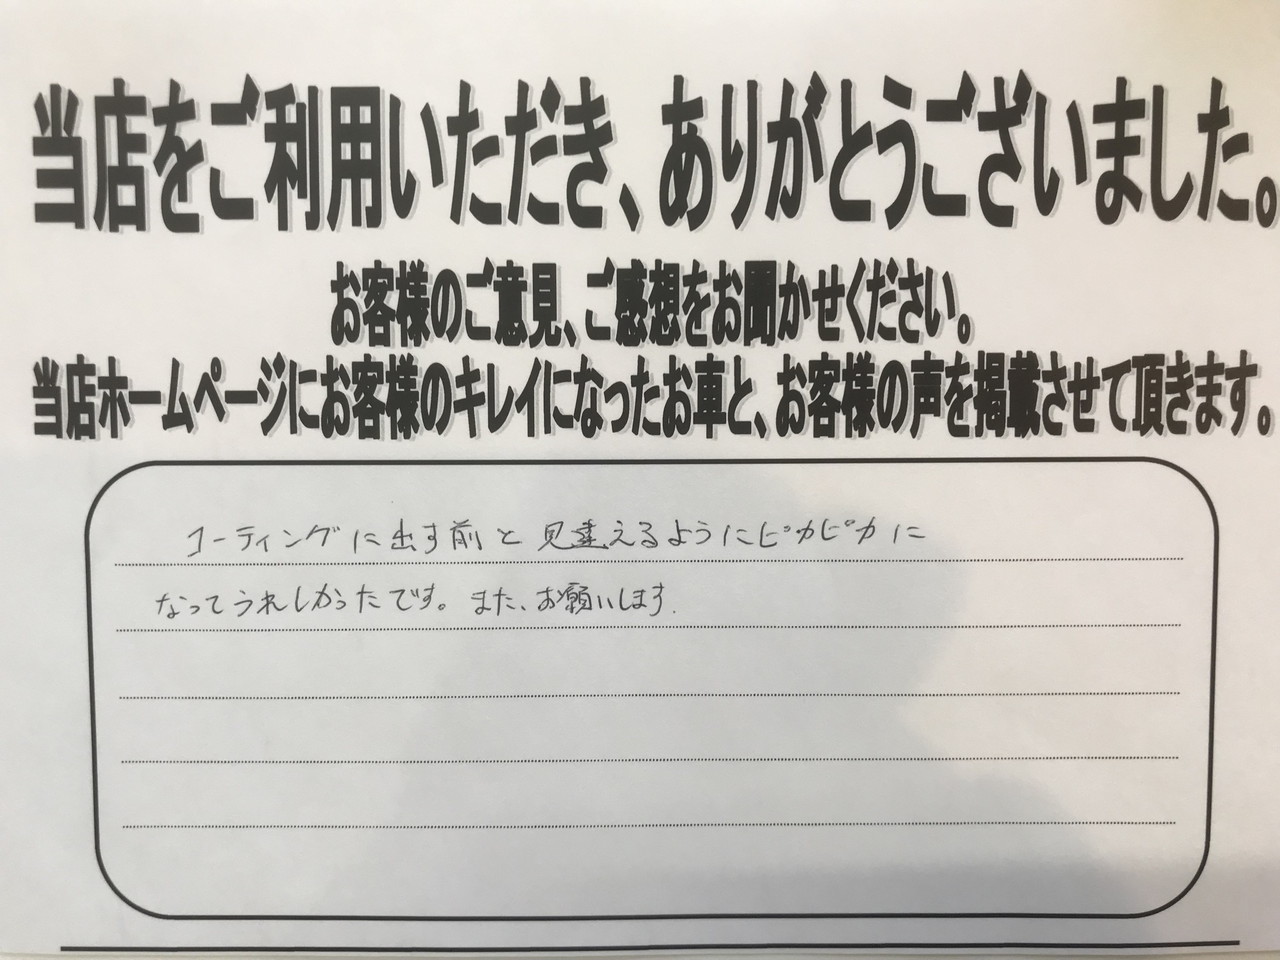 当店をご利用いただき、ありがとうございました。
お客様のご意見、ご感想をお聞かせください。
当店ホームページにお客様のキレイになったお車と、お客様の声を掲載させて頂きます。
コーティングに出す前と見違えるようにピカピカに
なってうれしかったです。また、お願いします.